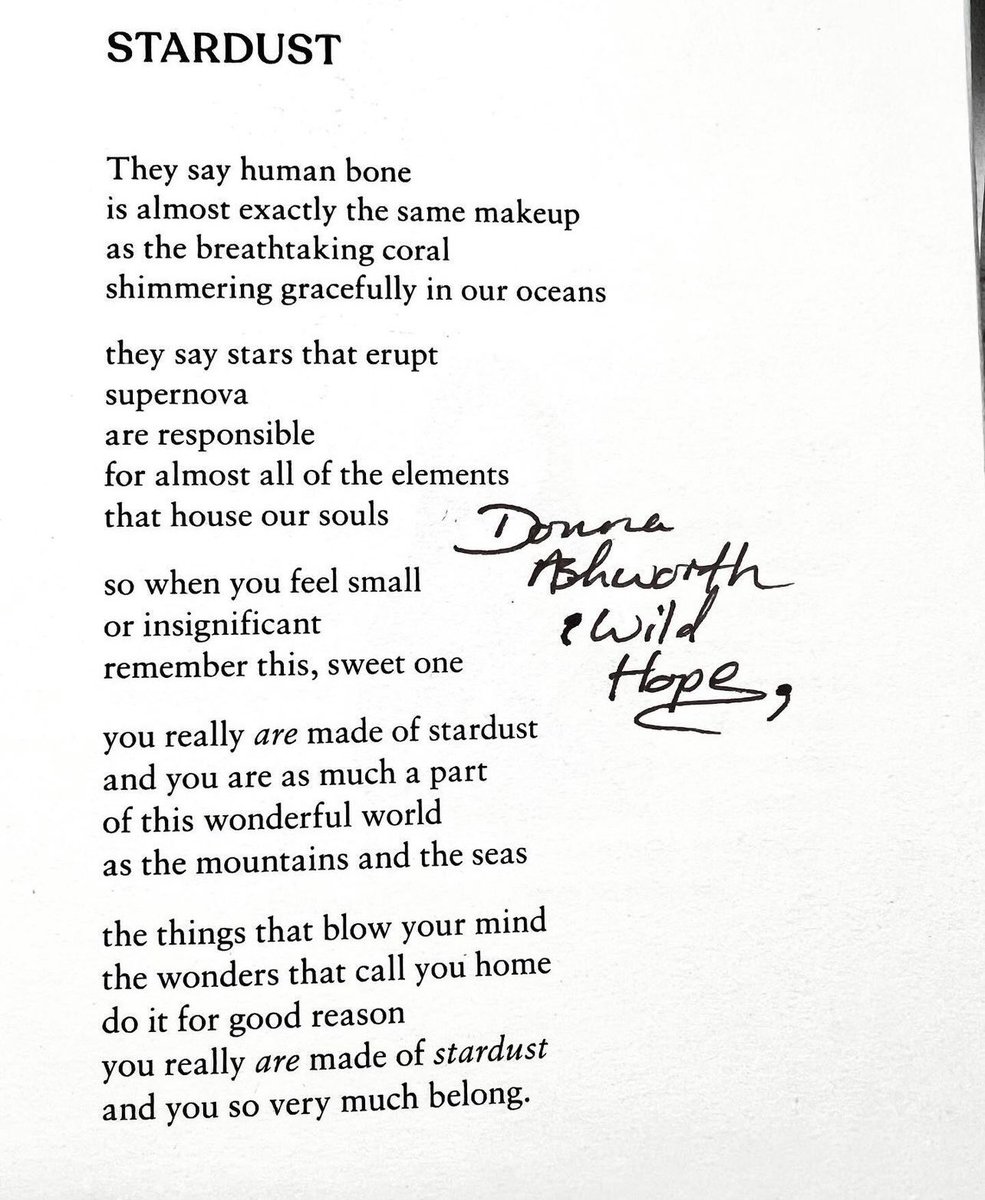 STARDUST
They say human bone
is almost exactly the same makeup
as the breathtaking coral
shimmering gracefully in our oceans
they say stars that erupt
supernova
are responsible
for almost all of the elements
that house our souls
so when you feel small
or insignificant
remember this, sweet one
you really are made of stardust
and you are as much a part
of this wonderful world
as the mountains and the seas
the things that blow your mind
the wonders that call you home
do it for good reason
you really are made of stardust
and you so very much belong.
Donna
Ashworth
& Wild
Hope,